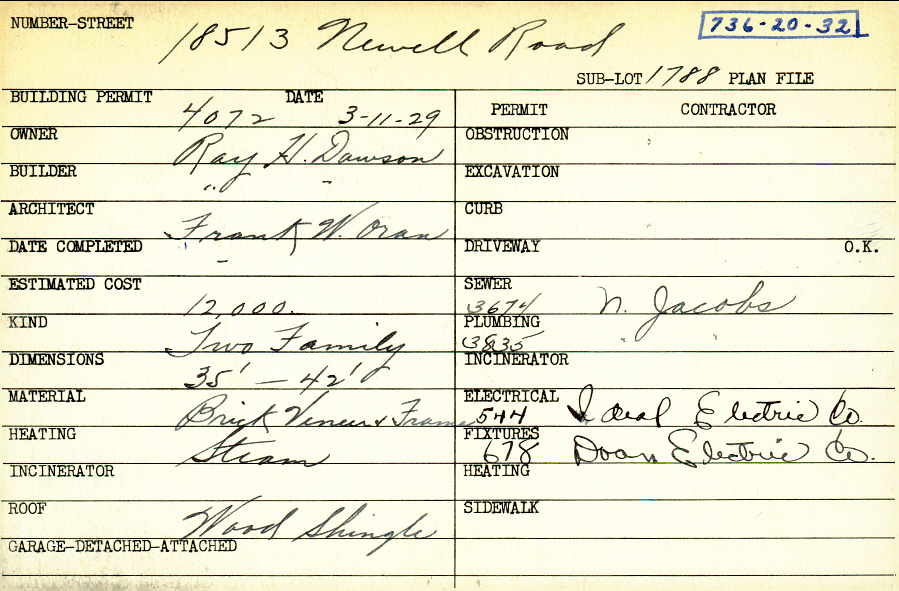 NUMBER-STREET 18513 Newell Road 736-20-32
SUB-LOT 1788 PLAN FILE
BUILDING PERMIT 4072 DATE 3-11-29
OWNER Ray H. Dawson
BUILDER " "
ARCHITECT Frank W. Oran
DATE COMPLETED -
ESTIMATED COST 12,000.
KIND Two Family
DIMENSIONS 35' — 42'
MATERIAL Brick Veneer & Frame
HEATING Steam
INCINERATOR
ROOF Wood Shingle
GARAGE-DETACHED-ATTACHED
PERMIT CONTRACTOR
OBSTRUCTION
EXCAVATION
CURB
DRIVEWAY O.K.
SEWER 3674 N. Jacobs
PLUMBING 3835 " "
INCINERATOR
ELECTRICAL 544 Ideal Electric Co.
FIXTURES 678 Doan Electric Co.
HEATING
SIDEWALK